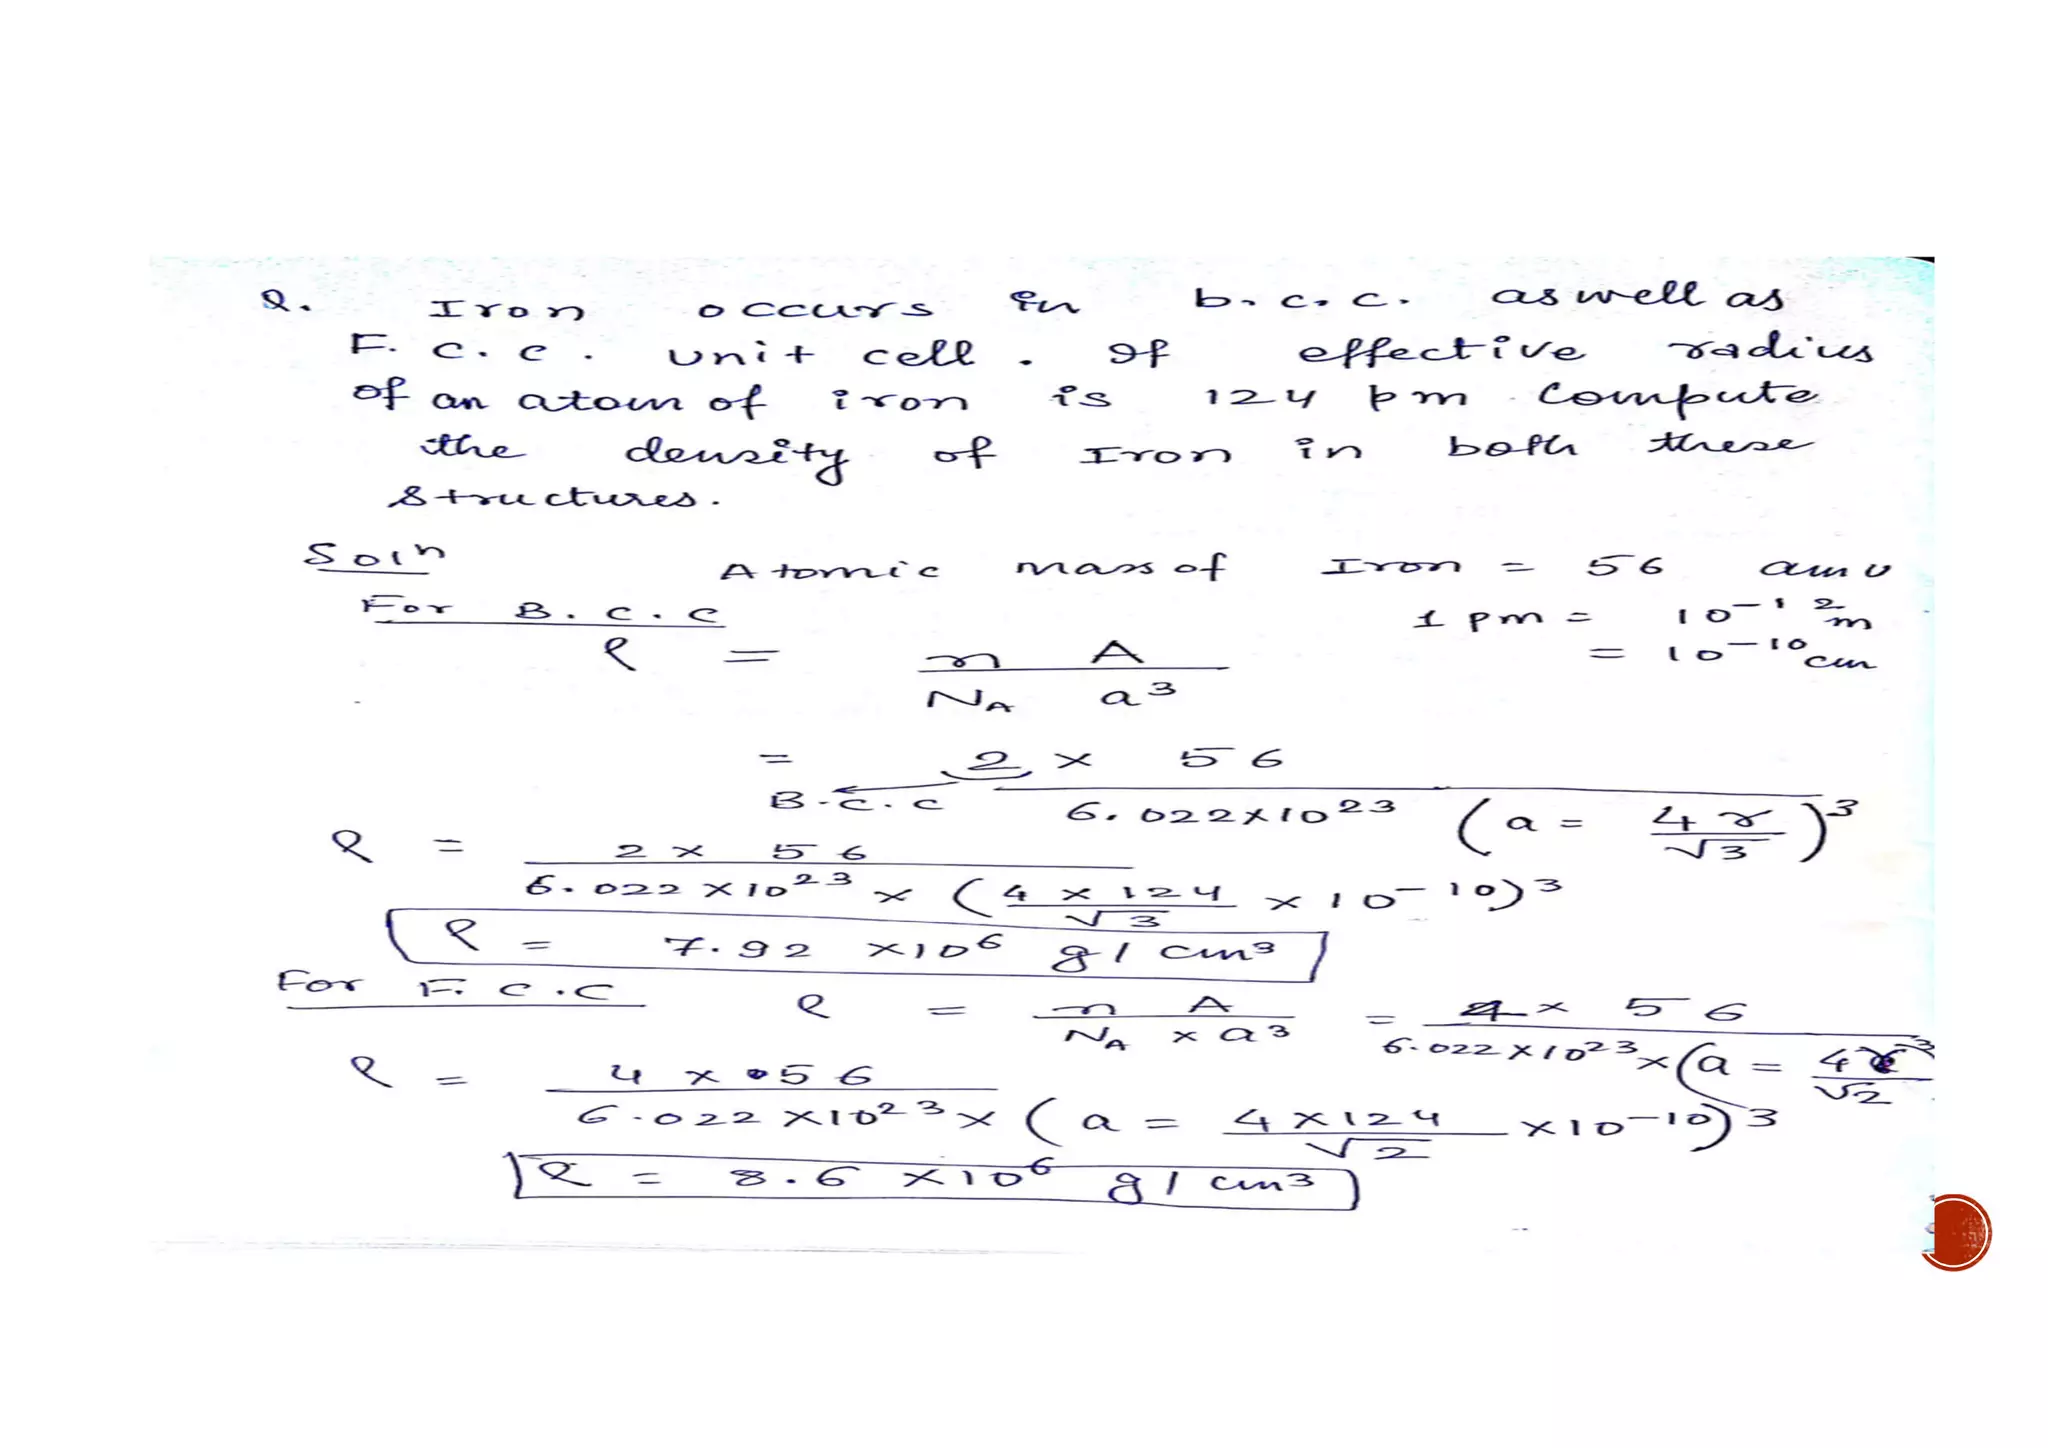 Q. Iron occurs in b.c.c. as well as
F.C.C. unit cell. If effective radius
of an atom of iron is 124 pm. Compute
the density of Iron in both these
structures.
Soln Atomic mass of Iron = 56 amu
For B.C.C 1 pm = 10⁻¹² m
= 10⁻¹⁰ cm
ρ = n A / N_A a³
= 2 × 56 / 6.022×10²³ (a = 4r/√3)³
B.C.C
ρ = 2 × 56 / 6.022 × 10²³ × (4 × 124/√3 × 10⁻¹⁰)³
ρ = 7.92 × 10⁶ g/cm³
For F.C.C ρ = n A / N_A × a³ = 4 × 56 / 6.022×10²³ × (a = 4r/√2)³
ρ = 4 × 56 / 6.022 ×10²³ × (a = 4×124/√2 ×10⁻¹⁰)³
ρ = 8.6 × 10⁶ g/cm³